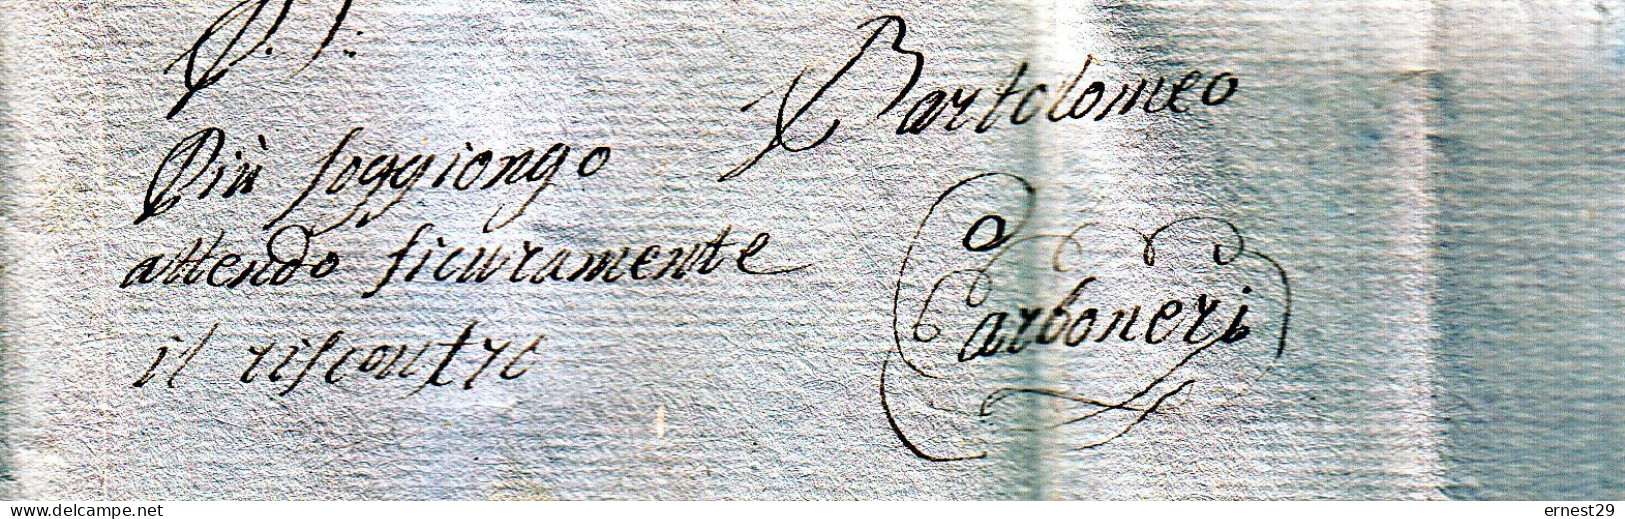 P. S:
Più soggiongo
attendo sicuramente
il riscontro
Bartolomeo
Carboneri
delcampe.net
ernest29